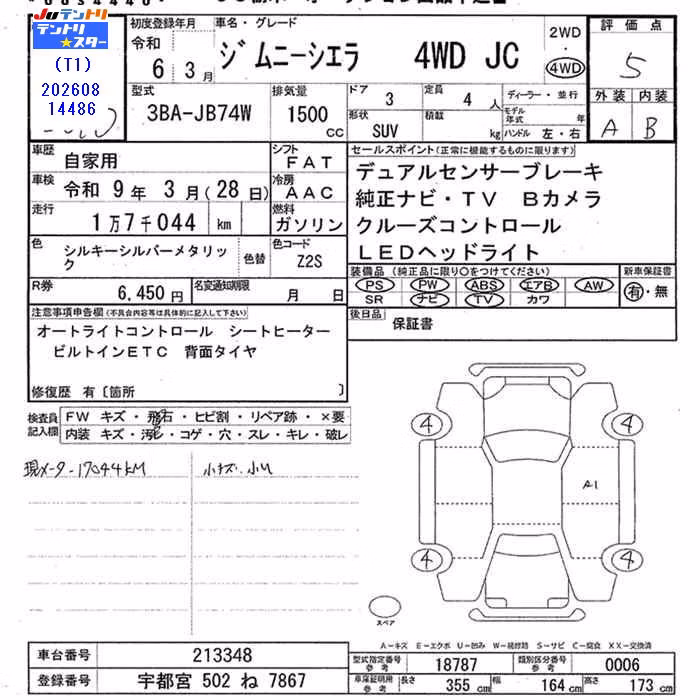 Juテントリ
テントリ★スター
(T1)
202608
14486
初度登録年月
令和
6 3月
車名・グレード
ジムニーシエラ 4WD JC
2WD
・
4WD
評価点
5
外装 内装
A B
型式
3BA-JB74W
排気量
1500
CC
ドア
3
形状
SUV
定員
4 人
積載
kg
ディーラー・並行
モデル年式 年
ハンドル 左・右
車歴
自家用
車検
令和 9年 3月(28日)
走行
1万7千044 km
シフト
FAT
冷房
AAC
燃料
ガソリン
セールスポイント(正常に機能するものに限ります)
デュアルセンサーブレーキ
純正ナビ・TV Bカメラ
クルーズコントロール
LEDヘッドライト
色
シルキーシルバーメタリック
色替
色コード
Z2S
R券
6,450円
名変通知期限
月 日
装備品 (純正品に限り○をつけてください)
PS PW ABS エアB AW
SR ナビ TV カワ
新車保証書
有・無
後日品
保証書
注意事項申告欄(不具合内容等は具体的に記入して下さい)
オートライトコントロール シートヒーター
ビルトインETC 背面タイヤ
修復歴 有〔箇所 〕
検査員記入欄
FW キズ・飛石・ヒビ割・リペア跡・×要
内装 キズ・汚れ・コゲ・穴・スレ・キレ・破レ
現メーター17044KM
小キズ、小U
4 4
A1
4 4
スペア
A－キズ E－エクボ U－凹み W－補修跡 S－サビ C－腐食 XX－交換済
車台番号
213348
登録番号
宇都宮 502 ね 7867
型式指定番号
参考
18787
類別区分番号
参考
0006
車庫証明用
参考
長さ 355 cm
幅 164 cm
高さ 173 cm